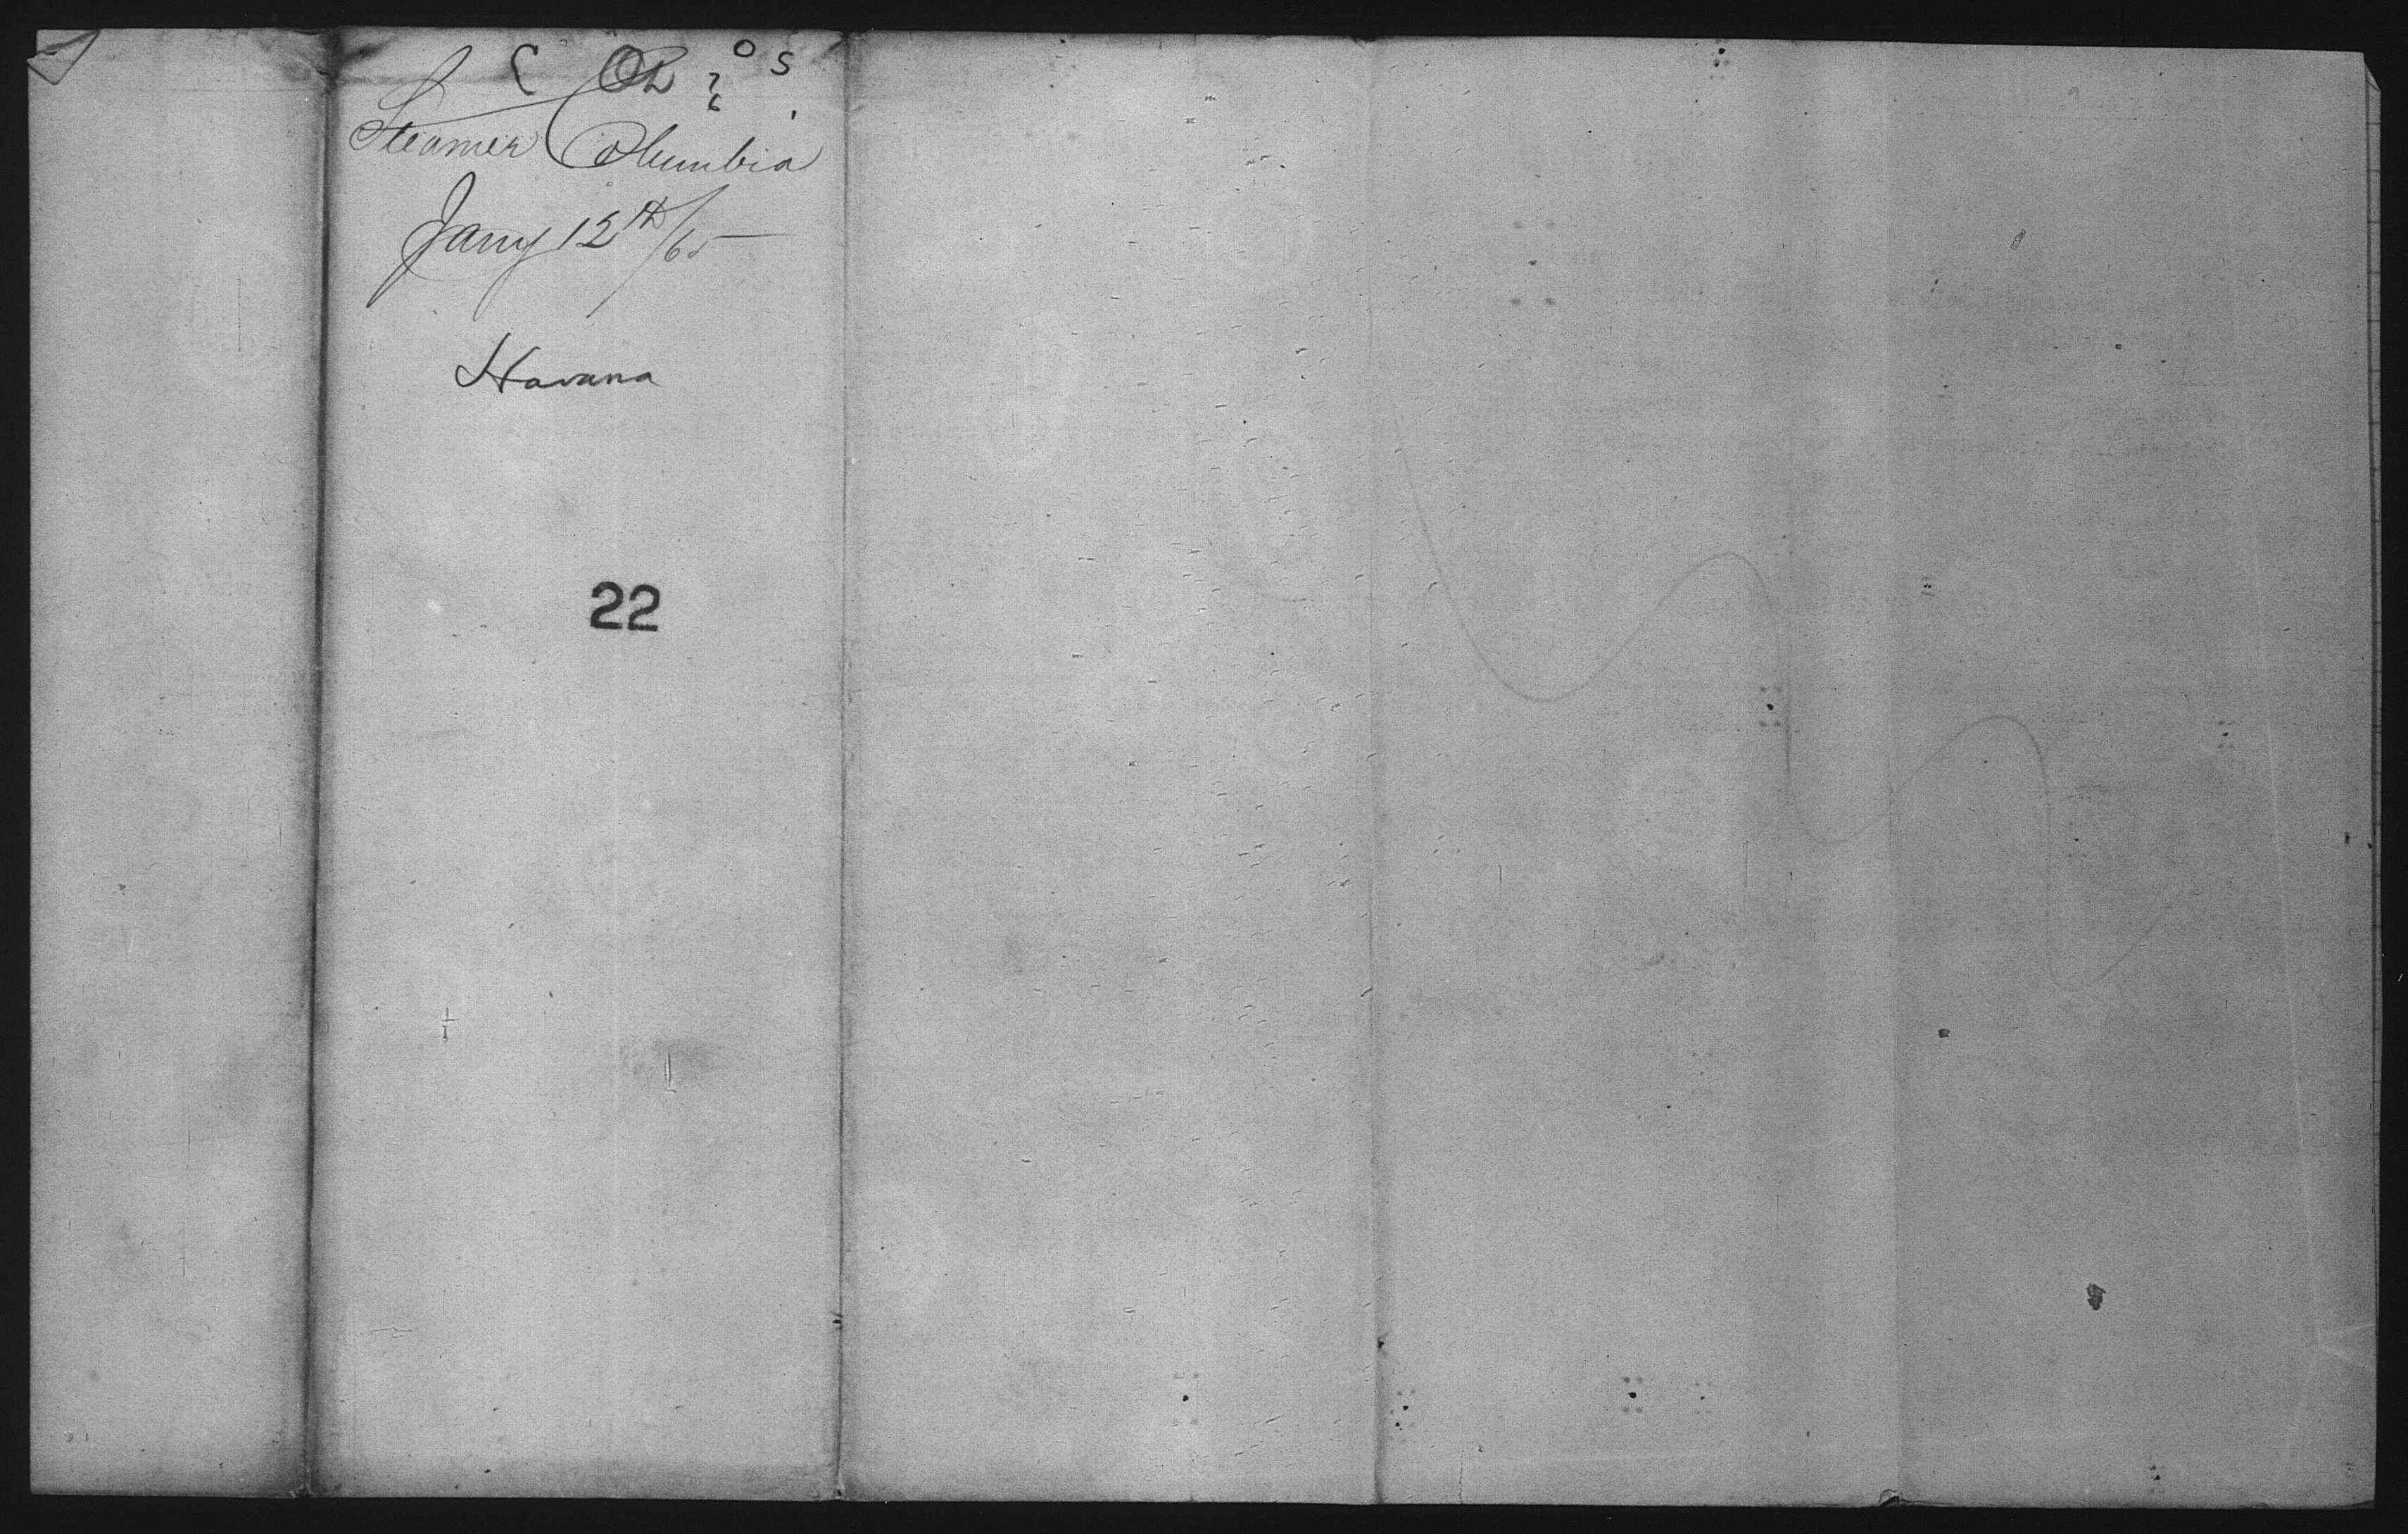 Steamer Columbia
Jany 12th/65
Havana
22